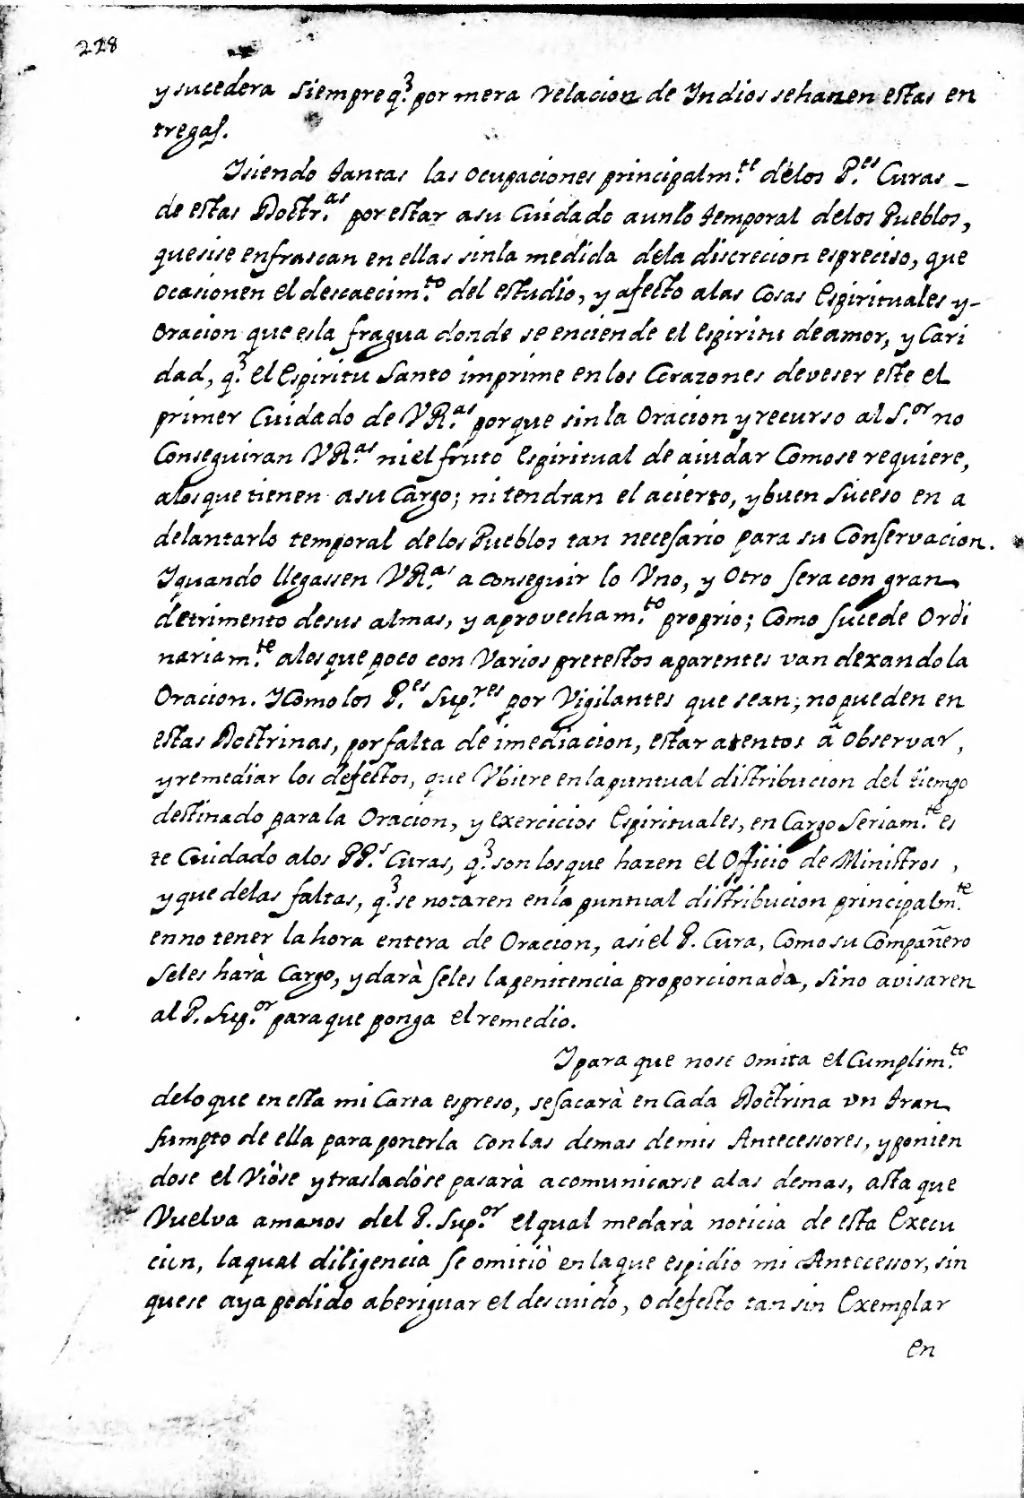 228
y sucedera siempre q.e por mera relacion de Indios se hazen estas en
tregas.
Y siendo tantas las ocupaciones principalm.te delos P.es Curas
de estas Doctr.as por estar a su Cuidado aunlo temporal delos Pueblos,
que si se enfrascan en ellas sin la medida dela discrecion es preciso, que
ocasionen el descaecim.to del estudio, y afecto alas Cosas Espirituales y
Oracion que es la fragua donde se enciende el Espiritu de amor, y Cari
dad, q.e el Espiritu Santo imprime en los Corazones deve ser este el
primer Cuidado de VR.as porque sin la Oracion y recurso al S.or no
Conseguiran VR.as ni el fruto Espiritual de aiudar Como se requiere,
alos que tienen a su Cargo; ni tendran el acierto, y buen suceso en a
delantarlo temporal delos Pueblos tan necesario para su Conservacion.
Y quando llegassen VR.as a conseguir lo Uno, y Otro sera con gran
detrimento de sus almas, y aprovecham.to proprio; Como sucede Ordi
nariam.te alos que poco con Varios pretestos aparentes van dexando la
Oracion. Y Como los P.es Sup.res por Vigilantes que sean; no pueden en
estas Doctrinas, por falta de imediacion, estar atentos à Observar,
y remediar los defectos, que Ubiere en la puntual distribucion del tiempo
destinado para la Oracion, y exercicios Espirituales, en Cargo Seriam.te es
te Cuidado alos PP.s Curas, q.e son los que hazen el Officio de Ministros,
y que delas faltas, q.e se notaren en la puntual distribucion principalm.te
en no tener la hora entera de Oracion, asi el P. Cura, Como su Compañero
Se les harà Cargo, y darà seles la penitencia proporcionada, Sino avisaren
al P. Sup.or para que ponga el remedio.
Y para que no se Omita el Cumplim.to
delo que en esta mi Carta espreso, se sacarà en Cada Doctrina vn tran
sumpto de ella para ponerla con las demas de mis Antecessores, y ponien
dose el Viòse y trasladòse pasarà a comunicarse alas demas, asta que
Vuelva a manos del P. Sup.or el qual me darà noticia de esta Execu
cion, la qual diligencia se omitiò en la que espidio mi Antecessor, sin
que se aya pedido aberiguar el descuido, o defecto tan sin Exemplar
en